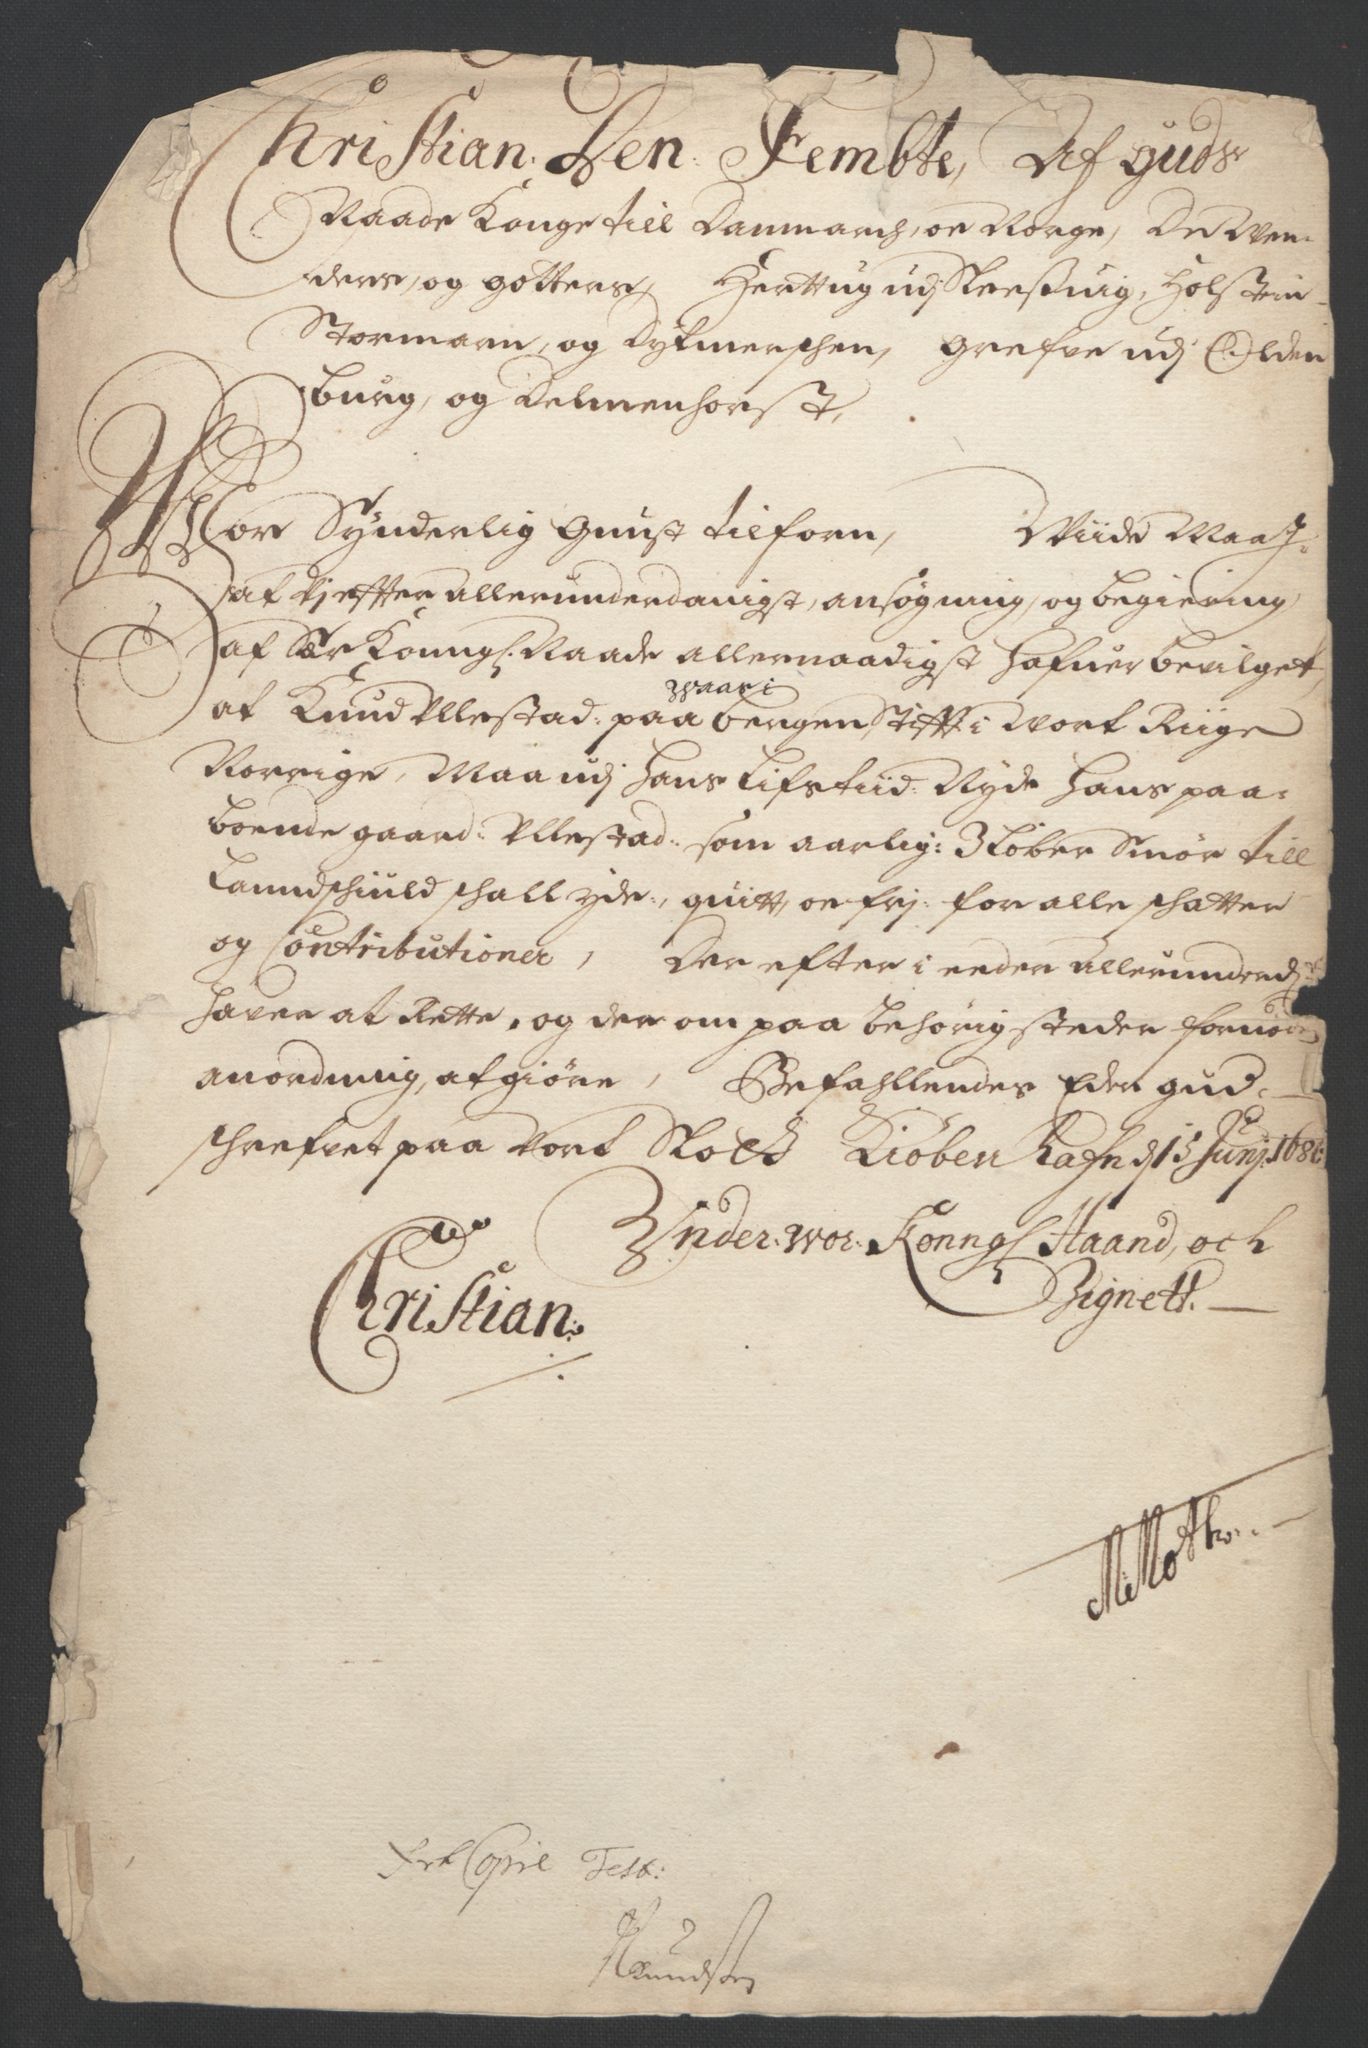 Christian: Den: Fembte, Af Guds
Naade Konge till Danmarch, oc Norge, De Wen-
ders, og gotters, Herttug udj Sleeßuig, Holstein
Stormarn, og Dytmerschen, Grefve udj Olden
burg, og Delmenhorst,
Wor Synderlig Gunst tilforn, Wiide Maa I,
at Vj effter allerunderdanigst, ansøgning, og begiering
af Vor Konngl: Naade allernaadigst hafuer bevilget,
waar i
at Knud Ullestad: paa bergen Stifft i Wort Riige
Norrige, Maa udj hans Lifstiid: Nyde hans paa-
boende gaard: Ullestad: som aarlig: 3 Løber Smør till
Landschiuld schall yde:, quitt, oc frj: for alle schatter
og Contributioner, Der efter i eder allerunderdj
haver at Rette, og der om paa behørig steder fornød
anordning, at giøre, Befahllendes Eder gud,
schrefvet paa Vort Slott Kiøbenhafn dj 15 Junj: 168
Under: wor: Konngl Haand, och
Zignett.
Christian:
M: Moth
Rett Copie Test:
Knudsen